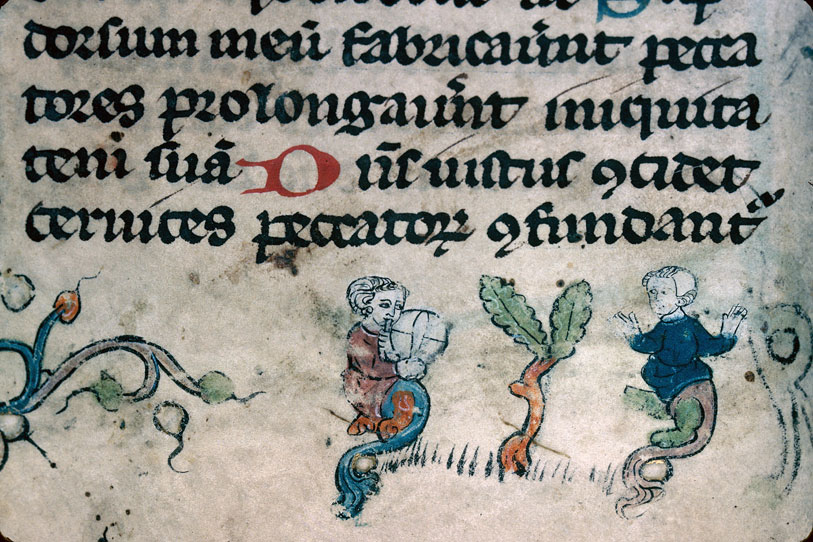 dorsum meū fabricaűnt pecca
tores prolongaűnt iniquita
tem suā Dn̄s iustus ꝯcidet
ceruices peccatoꝝ ꝯfundantᷣ